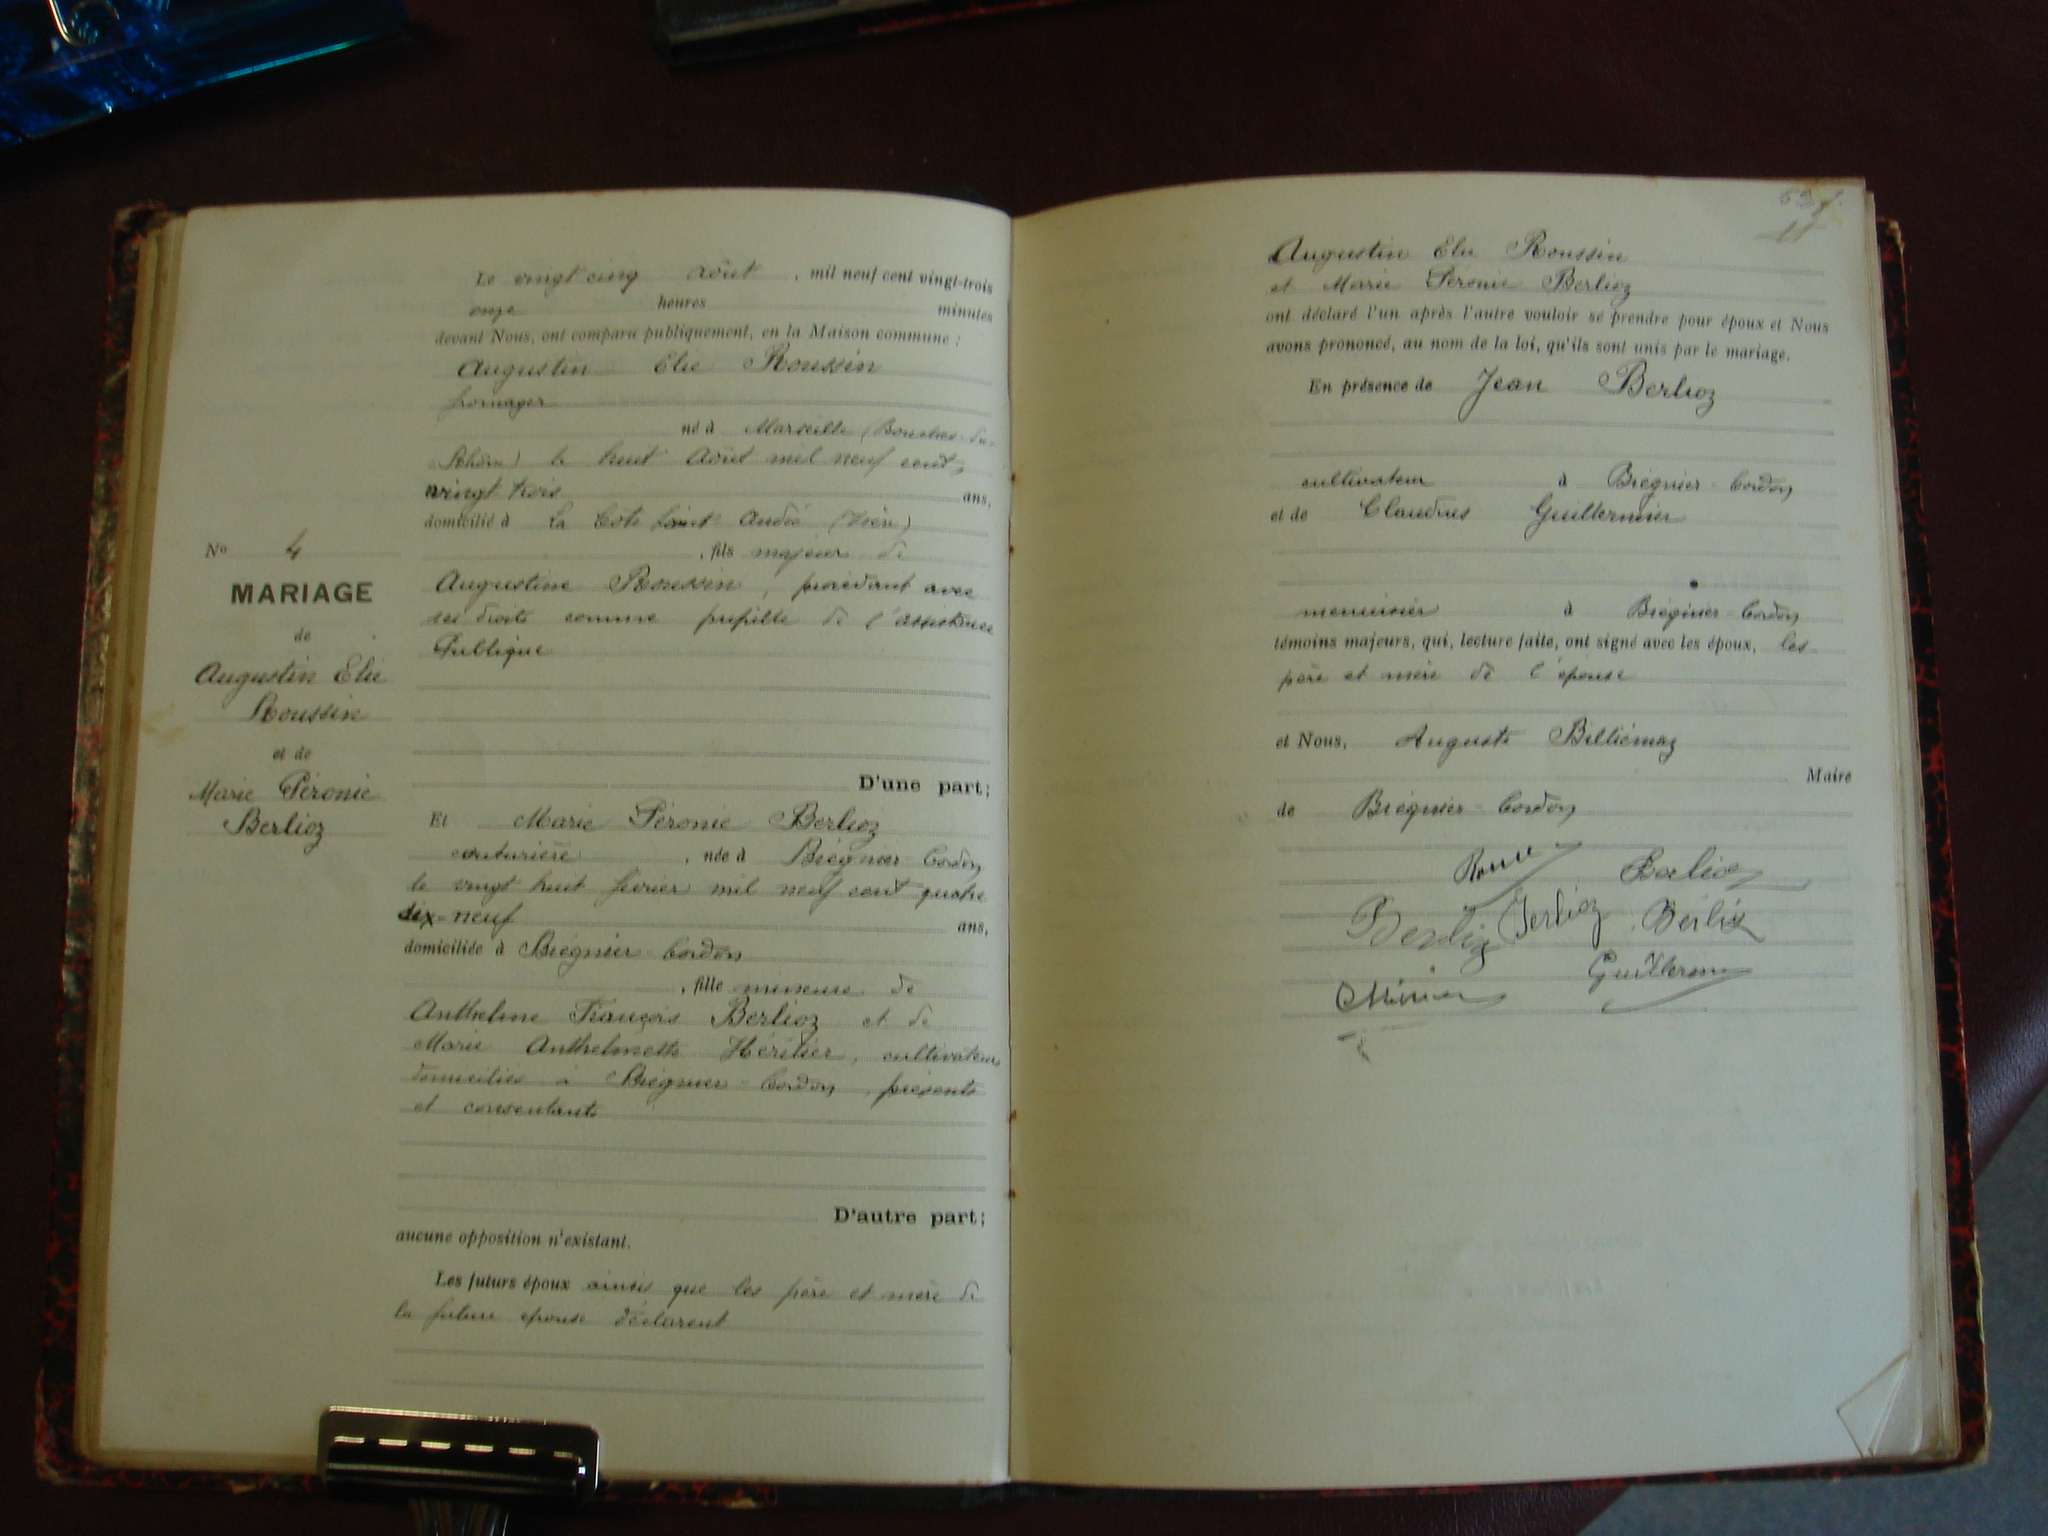 Le vingt cinq août, mil neuf cent vingt-trois
onze heures minutes
devant Nous, ont comparu publiquement, en la Maison commune :
Augustin Elie Roussin
fromager
né à Marseille (Bouches-du-
Rhône) le huit Août mil neuf cent,
vingt trois ans,
domicilié à La Cote Saint André (Isère)
, fils majeur de
Augustine Roussin, procédant avec
ses droits comme pupille de l'assistance
Publique
No 4
MARIAGE
de
Augustin Elie
Roussin
et de
Marie Péronie
Berlioz
D'une part;
Et Marie Péronie Berlioz
couturière, née à Brégnier-Cordon
le vingt huit février mil neuf cent quatre
dix-neuf ans,
domiciliée à Brégnier-Cordon
, fille mineure de
Anthelme François Berlioz et de
Marie Anthelmette Héritier, cultivateurs
domiciliés à Brégnier-Cordon, présents
et consentants
D'autre part;
aucune opposition n'existant.
Les futurs époux ainsi que les père et mère de
la future épouse déclarent
Augustin Elie Roussin
et Marie Péronie Berlioz
ont déclaré l'un après l'autre vouloir se prendre pour époux et Nous
avons prononcé, au nom de la loi, qu'ils sont unis par le mariage.
En présence de Jean Berlioz
cultivateur à Brégnier-Cordon
et de Claudius Guillermier
menuisier à Brégnier-Cordon
témoins majeurs, qui, lecture faite, ont signé avec les époux, les
père et mère de l'épouse
et Nous, Auguste Billiémaz
Maire
de Brégnier-Cordon
Berlioz
Berlioz Berlioz Berlioz